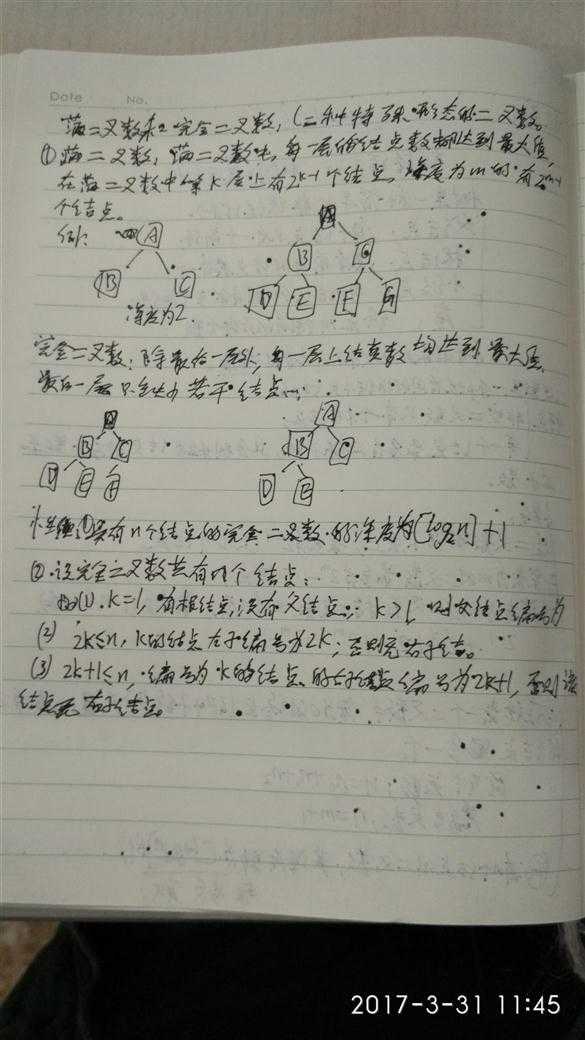 Date No.
满二叉数和完全二叉数,(二种特殊形态的二叉数。
①满二叉数,满二叉数中,每一层的结点数都达到最大值,
在满二叉数中第K层上有2k-1个结点,深度为m的有2m-1
个结点。
例: A A
B C B C
D E F G
深度为2.
完全二叉数:除最后一层外,每一层上结点数均达到最大值,
最后一层只缺少若干结点
A A
B C B C
D E F D E
性质①具有n个结点的完全二叉数的深度为[log2n]+1
②设完全二叉数共有n个结点:
(1).k=1,有根结点,没有父结点; k>1, 则父结点编号为
(2) 2k≤n, k的结点左子编号为2k;否则无右子结。
(3) 2k+1≤n,编号为k的结点的右子结点编号为2k+1,否则该
结点无右子结点。
2017-3-31 11:45